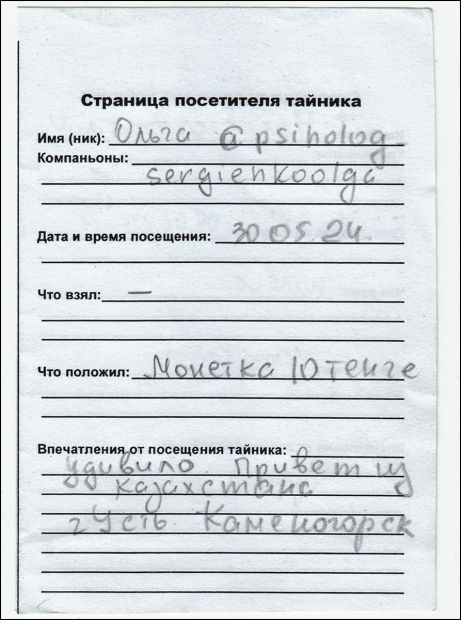 Страница посетителя тайника
Имя (ник): Ольга @psiholog
Компаньоны:
sergienkoolga
Дата и время посещения: 30 05. 24.
Что взял: —
Что положил: Монетка 10 тенге
Впечатления от посещения тайника:
удивило. Привет из
Казахстана
г Усть Каменогорск